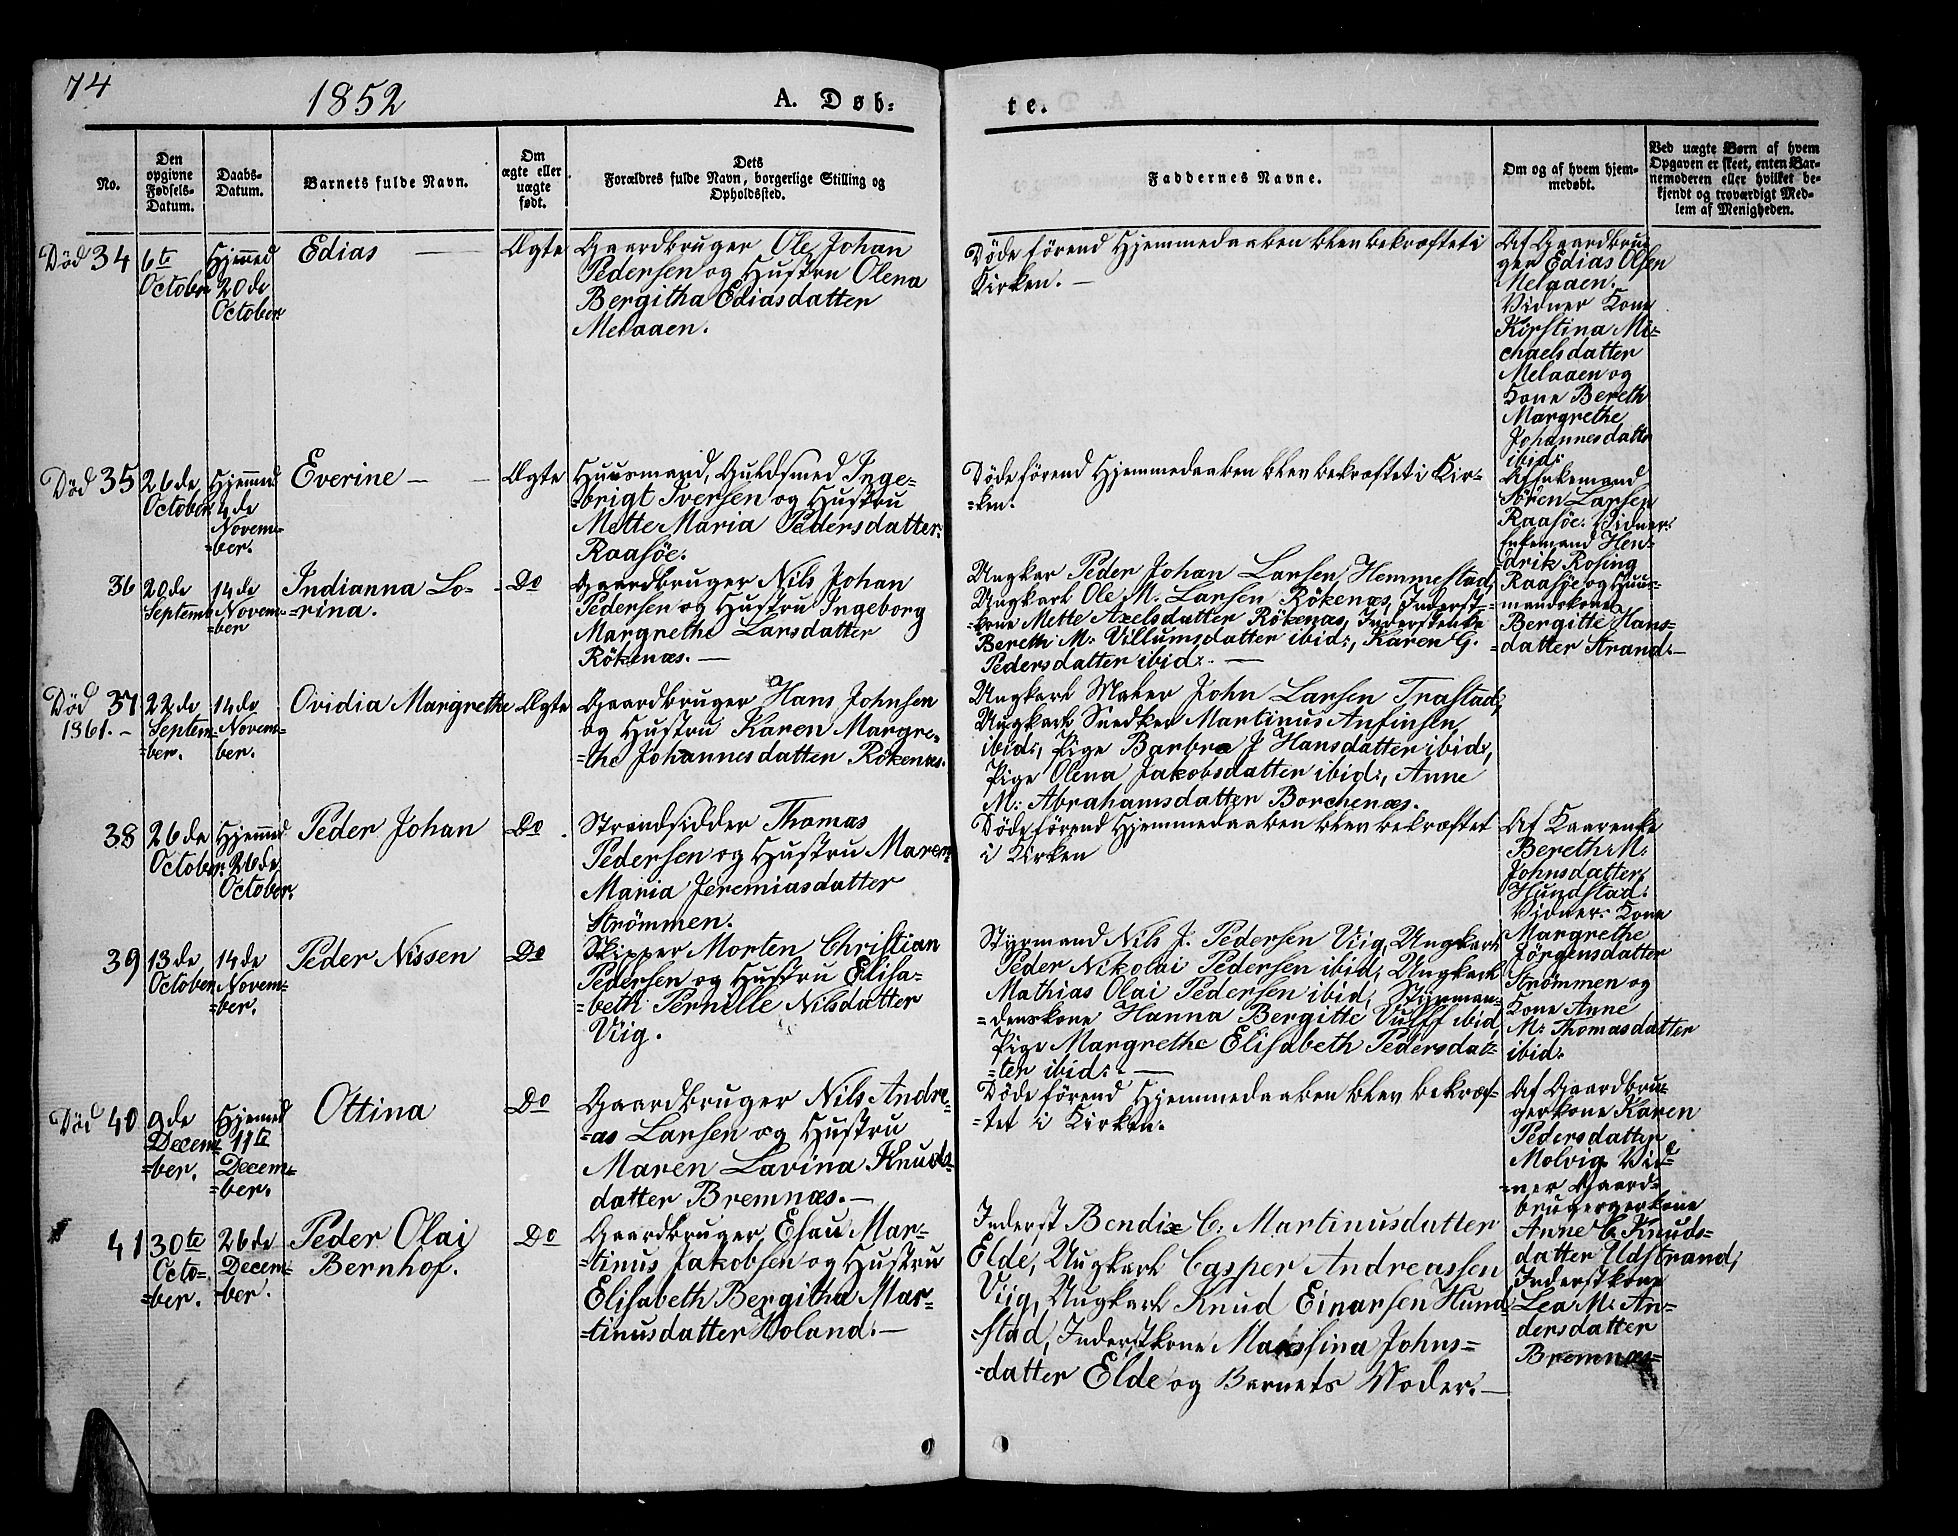 74
1852
A. Døb-
te.
No.
Den
opgivne
Fødsels-
Datum.
Daabs-
Datum.
Barnets fulde Navn.
Om
ægte eller
uægte
født.
Dets
Forældres fulde Navn, borgerlige Stilling og
Opholdssted.
Faddernes Navne.
Om og af hvem hjem-
medøbt.
Ved uægte Børn af hvem
Opgaven er skeet, enten Bar-
nemoderen eller hvilket be-
kjendt og troværdigt Med-
lem af Menigheden.
Død 34
6te
October
Hjemmed
20de
October
Edias —
Ægte
Gaardbruger Ole Johan
Pedersen og Hustru Olena
Bergitha Ediasdatter
Melaaen.
Døde förend Hjemmedaaben blev bekræftet i
Kirken. —
Af Gaardbru-
ger Edias Olsen
Melaaen.
Vidner Kone
Kirstina Mi-
chaelsdatter
Melaaen og
Kone Bereth
Margrethe
Johannesdatte
ibid:
Død 35
26de
October
Hjemmed
4de
Novem-
=ber.
Everine —
Ægte
Huusmand, Guldsmed Inge-
=brigt Iversen og Hustru
Mette Maria Pedersdatter.
Raasöe.
Døde förend Hjemmedaaben blev bekræftet i Kir-
=ken.
Af Enkemand
Sören Larsen
Raasöe. Vidner:
Enkemand Hen-
=drik Rosing
Raasöe og Huus-
=mandskone
Bergitte Hans-
=datter Strand.—
36
20de
Septemb
14de
Novem-
=ber
Indianna Lo-
=rina.
Do
Gaardbruger Nils Johan
Pedersen og Hustru Ingeborg
Margrethe Larsdatter
Rökenæs. —
Ungkar Peder Johan Larsen Hemmestad,
Ungkarl Ole M. Larsen Rökenæs, Inderst-
=kone Mette Axelsdatter Rökenæs, Inderstenke
Bereth M: Villumsdatter ibid:, Karen G.
Pedersdatter ibid:. —
Død 37
1861. -
22de
Septem-
=ber.
14de
Novem-
ber.
Ovidia Margrethe
Ægte
Gaardbruger Hans Johnsen
og Hustru Karen Margre-
=the Johannesdatter Rökenæs.
Ungkarl Maler John Larsen Trastad,
Ungkarl Snedker Martinus Anfinsen
ibid:, Pige Barbra J Hansdatter ibid:,
Pige Olena Jakobsdatter ibid:, Anne
M: Abrahamsdatter Borchenæs.
38
26de
October
Hjemmed
26de
October.
Peder Johan
Do.
Strandsidder Thomas
Pedersen og Hustru Maren
Maria Jeremiasdatter
Strömmen.
Døde förend Hjemmedaaben blev bekræftet
i Kirken
Af Kaarenke
Bereth M:
Johnsdatter
Hundstad.
Vidner: Kone
Margrethe
Jörgensdatter
Strömmen og
Kone Anne
M: Thomasdatter
ibid.
39
13de
October
14de
Novem-
=ber.
Peder Nissen
Do
Skipper Morten Christian
Pedersen og Hustru Elisa-
=beth Pernille Nilsdatter
Viig.
Styrmand Nils J. Pedersen Viig, Ungkarl
Peder Nikolai Pedersen ibid, Ungkarl
Mathias Olai Pedersen ibid, Styrman-
=denskone Hanna Bergitte Vulff ibid,
Pige Margrethe Elisabeth Pedersdat-
=ter ibid:. —
Død 40
9de
Decem-
=ber.
Hjemmed
11te
Decem-
=ber.
Ottina
Do
Gaardbruger Nils Andre-
=as Larsen og Hustru
Maren Lavina Knuds-
datter Bremnæs. —
Døde förend Hjemmedaaben blev bekræf-
=tet i Kirken.
Af Gaardbru-
gerkone Karen
Pedersdatter
Molvig. Vid-
=ner Gaard-
brugergerkone
Anne C. Knuds-
datter Udstrand,
Inderstkone
Lea M: An-
dersdatter
Bremnæs
41
30te
Octo-
=ber.
26de
Decem-
ber.
Peder Olai
Bernhof.
Do
Gaardbruger Esau Mar-
=tinus Jakobsen og Hustru
Elisabeth Bergitha Mar-
=tinusdatter Holand. —
Inderst Bendix C. Martinusdatter
Elde, Ungkarl Casper Andreassen
Viig, Ungkarl Knud Einarsen Hund
=stad, Inderstkone Massina Johns-
=datter Elde og Barnets Moder. —